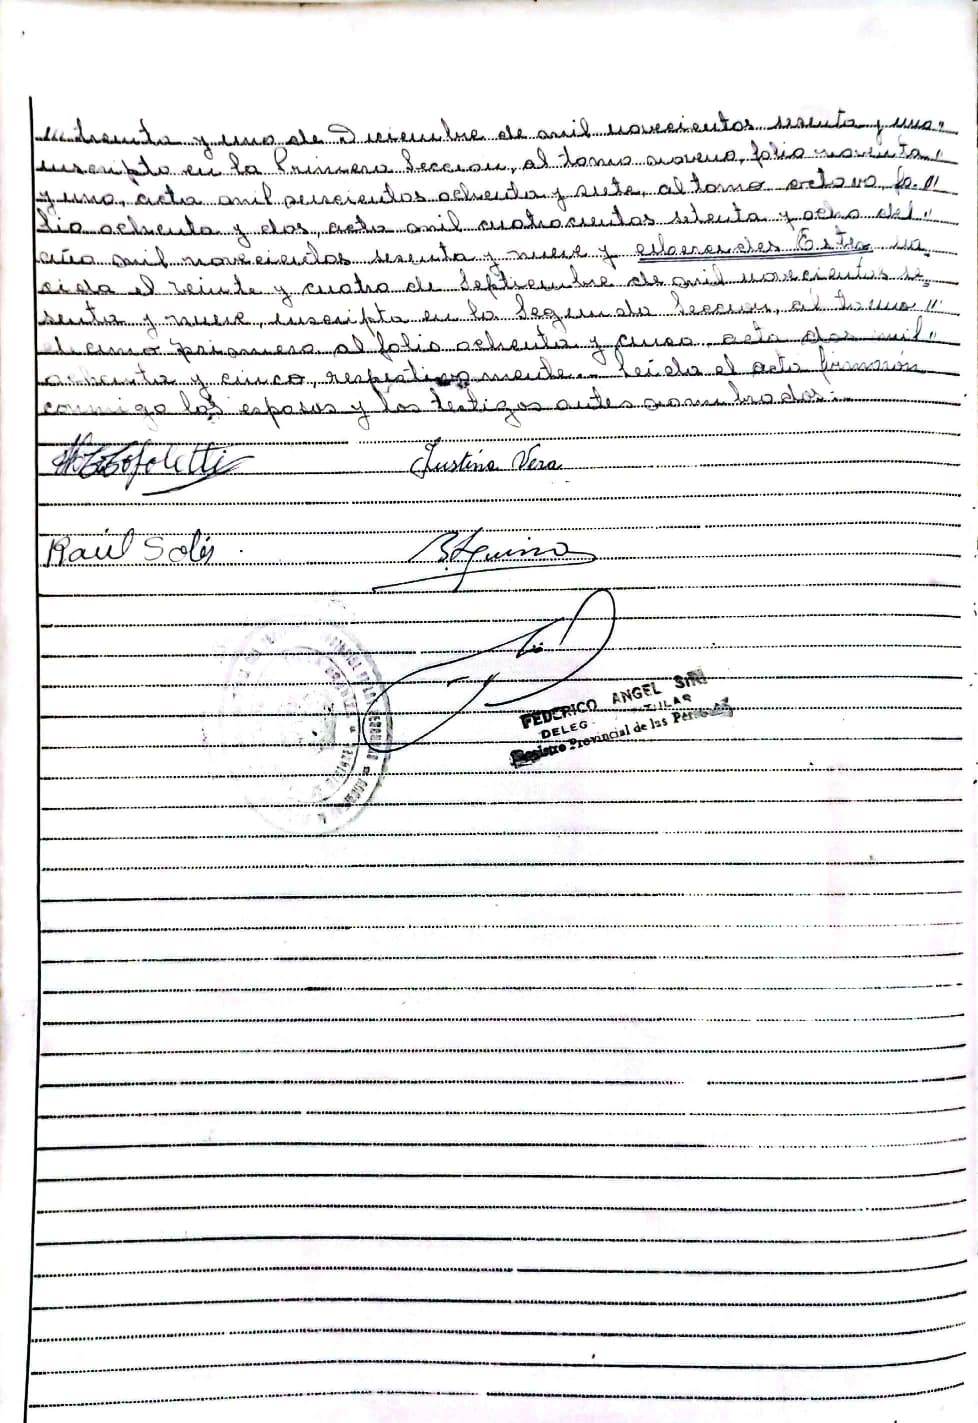 treinta y uno de Diciembre de mil novecientos sesenta y uno
inscripto en la Primera Seccion, al tomo noveno, folio noventa
y uno, acta mil seiscientos ochenta y siete, al tomo octavo, fo
lio ochenta y dos, acta mil cuatrocientos setenta y ocho del
año mil novecientos sesenta y nueve y Ester na
cida el veinte y cuatro de Septiembre de mil novecientos se
senta y nueve, inscripta en la Segunda Seccion, al tomo
decimo primero al folio ochenta y cinco, acta dos mil
ochenta y cinco, respectivamente. Leida el acta firmaron
conmigo los esposos y los testigos antes nombrados.
Justina Vera
Raúl Solis
B. Aquino
FEDERICO ANGEL
DELEG
Registro Provincial de las Personas